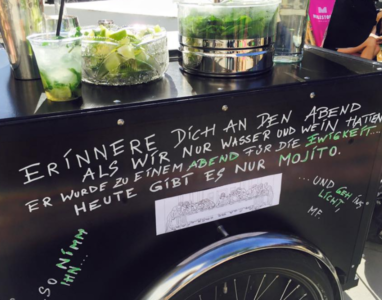 ERINNERE DICH AN DEN ABEND
ALS WIR NUR WASSER UND WEIN HATTEN
ER WURDE ZU EINEM ABEND FÜR DIE EWIGKEIT...
HEUTE GIBT ES NUR MOJITO.
...UND GEH INS
LICHT,
SO NIMM
IHN...